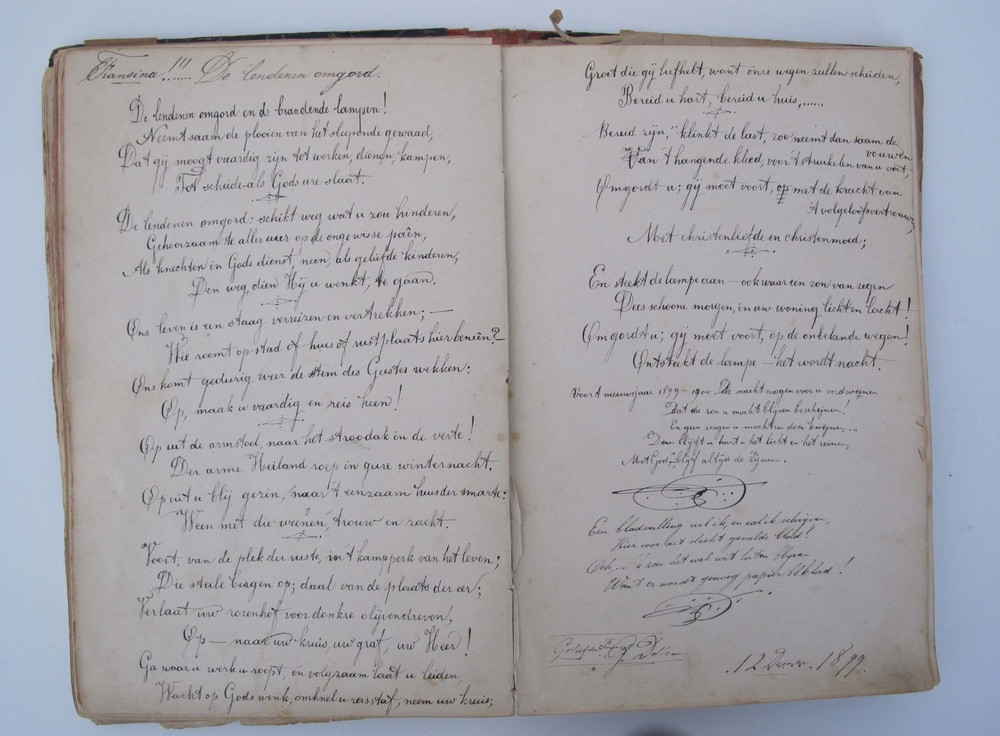 Fransina!!!..... De lendenen omgord.
De lendenen omgord en de brandende lampen!
Neemt saam de plooien van het sleepende gewaad,
Dat gij moogt vaardig zijn tot werken, dienen, kampen,
Tot scheide als Gods ure slaat.
De lendenen omgord: schikt weg wat u zou hinderen,
Gehoorzaam te aller uur op de ongewisse paên,
Als knechten in Gods dienst, neen, als geliefde kinderen,
Den weg, dien Hij u wenkt, te gaan.
Ons leven is een staag verreizen en vertrekken; —
Wie roemt op stad of huis of rustplaats hier beneên?
Ons komt gedurig weer de stem des Geestes wekken:
Op, maak u vaardig en reis heen!
Op uit de armstoel, naar het stroodak in de verte!
Der arme Heiland roep in gure winternacht.
Op uit u blij gezin, naar 't eenzaam huis der smarte:
Ween met die weenen, trouw en zacht.
Voort, van de plek der ruste, in 't kampperk van het leven;
Die steile bergen op; daal van de plaats der eer;
Verlaat uw rozenhof voor donkre olijvendreven,
Op — naar uw kruis, uw graf, uw Heer!
Ga waar u werk u roept, en volgzaam laat u leiden,
Wacht op Gods wenk, omknel u reisstaf, neem uw kruis;
Groet die gij liefhebt, want onze wegen zullen scheiden,
Bereid u hart, bereid u huis,......
Bereid zijn," klinkt de last, zoo neemt dan saam de vouwen
Van 't hangende kleed, voor 't struikelen van u voet,
Omgordt u; gij moet voort, op met de kracht van
A volgeloofsvertrouwen,
Met christenliefde en christenmoed;
En steekt de lampe aan — ook waar een zon van zegen
Dees schoone morgen, in uw woning licht en lacht!
Omgordt u; gij moet voort, op de onbekende wegen!
Ontsteekt de lampe — het wordt nacht.
Voor 't nieuwejaar 1899 – 1900 De nacht mogen voor u verdwijnen
Dat de zon u mocht blijven beschijnen!
En geen zorgen u mochten doen
Dan blijft u hart u het licht en het reine,
Met God blijf altijd de Zijne..
Een bladvulling wil ik, en zal ik schrijven
Hier voor dit slecht gevulde blad!
Och,.... 'k zou dit wel wit laten blijven
Want er wordt genoeg papier beklad!
12 1899.